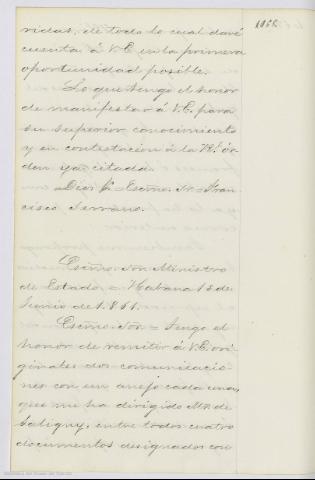 1862
ridas, de todo lo cual daré
cuenta á V.E. en la primera
oportunidad posible.
Lo que tengo el honor
de manifestar á V.E. para
su superior conocimiento
y en contestacion á la Rl. ór-
den ya citada.
Dios &a = Escmo. Sr. = Fran-
cisco Serrano.
Escmo. Sor. Ministro
de Estado = Habana 15 de
Junio de 1.861.
Escmo. Sor. = Tengo el
honor de remitir á V.E. ori-
ginales dos comunicacio-
nes con un anejo cada una,
que me ha dirigido Mr. de
Saligny, entre todos cuatro
documentos designados con